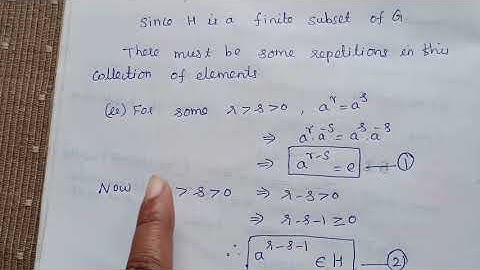 Since H is a finite subset of G
There must be some repetitions in this
collection of elements
(ie) For some r>s>0, a^r = a^s
⇒ a^r.a^-s = a^s.a^-s
⇒ a^r-s = e ①
Now >s>0 ⇒ r-s>0
⇒ r-s-1≥0
∴ a^r-s-1 ∈ H ②